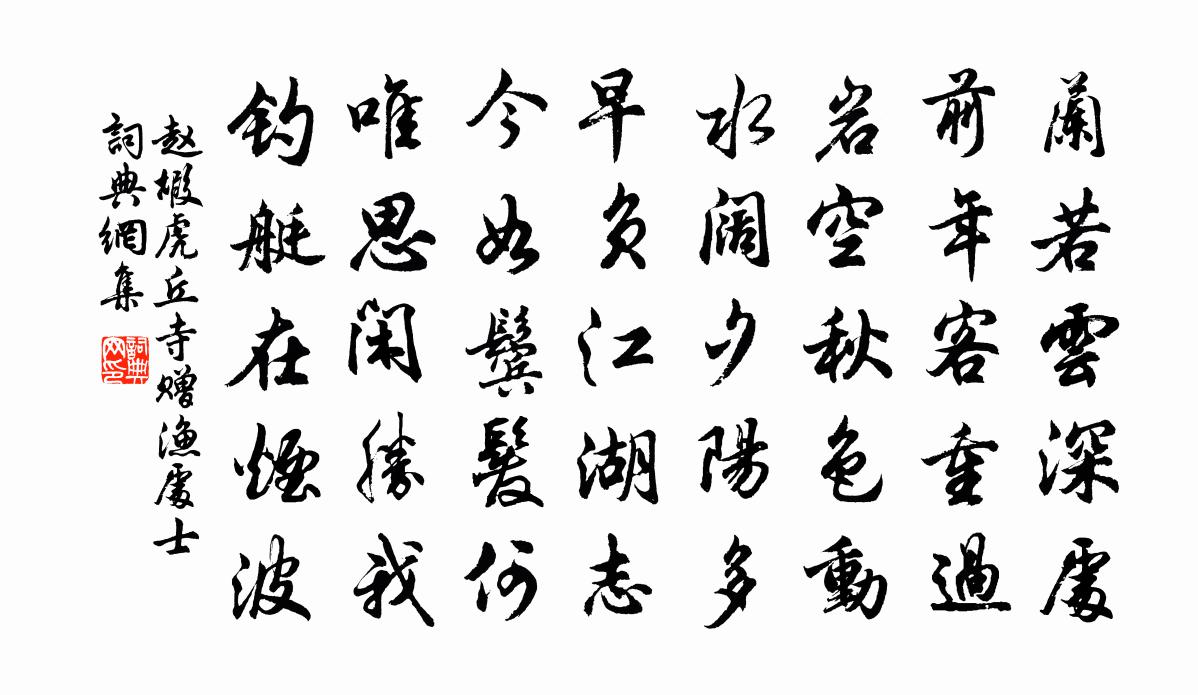 蘭若雲深處
前年客重過
岩空秋色動
水闊夕陽多
早負江湖志
今如鬢髮何
唯思閑勝我
釣艇在煙波
赵嘏虎丘寺赠漁處士
詞典網集
詞典网印